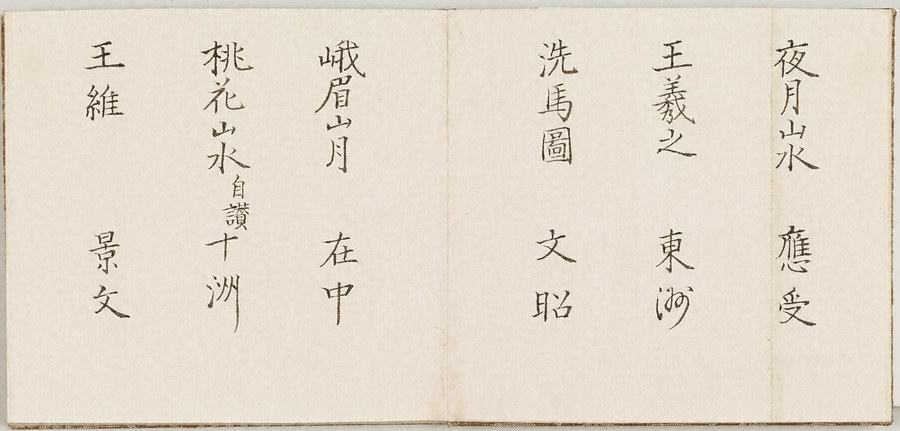 夜月山水　應受
王羲之　東洲
洗馬圖　文昭
峨眉山月　在中
桃花山水 自讃 十洲
王維　景文